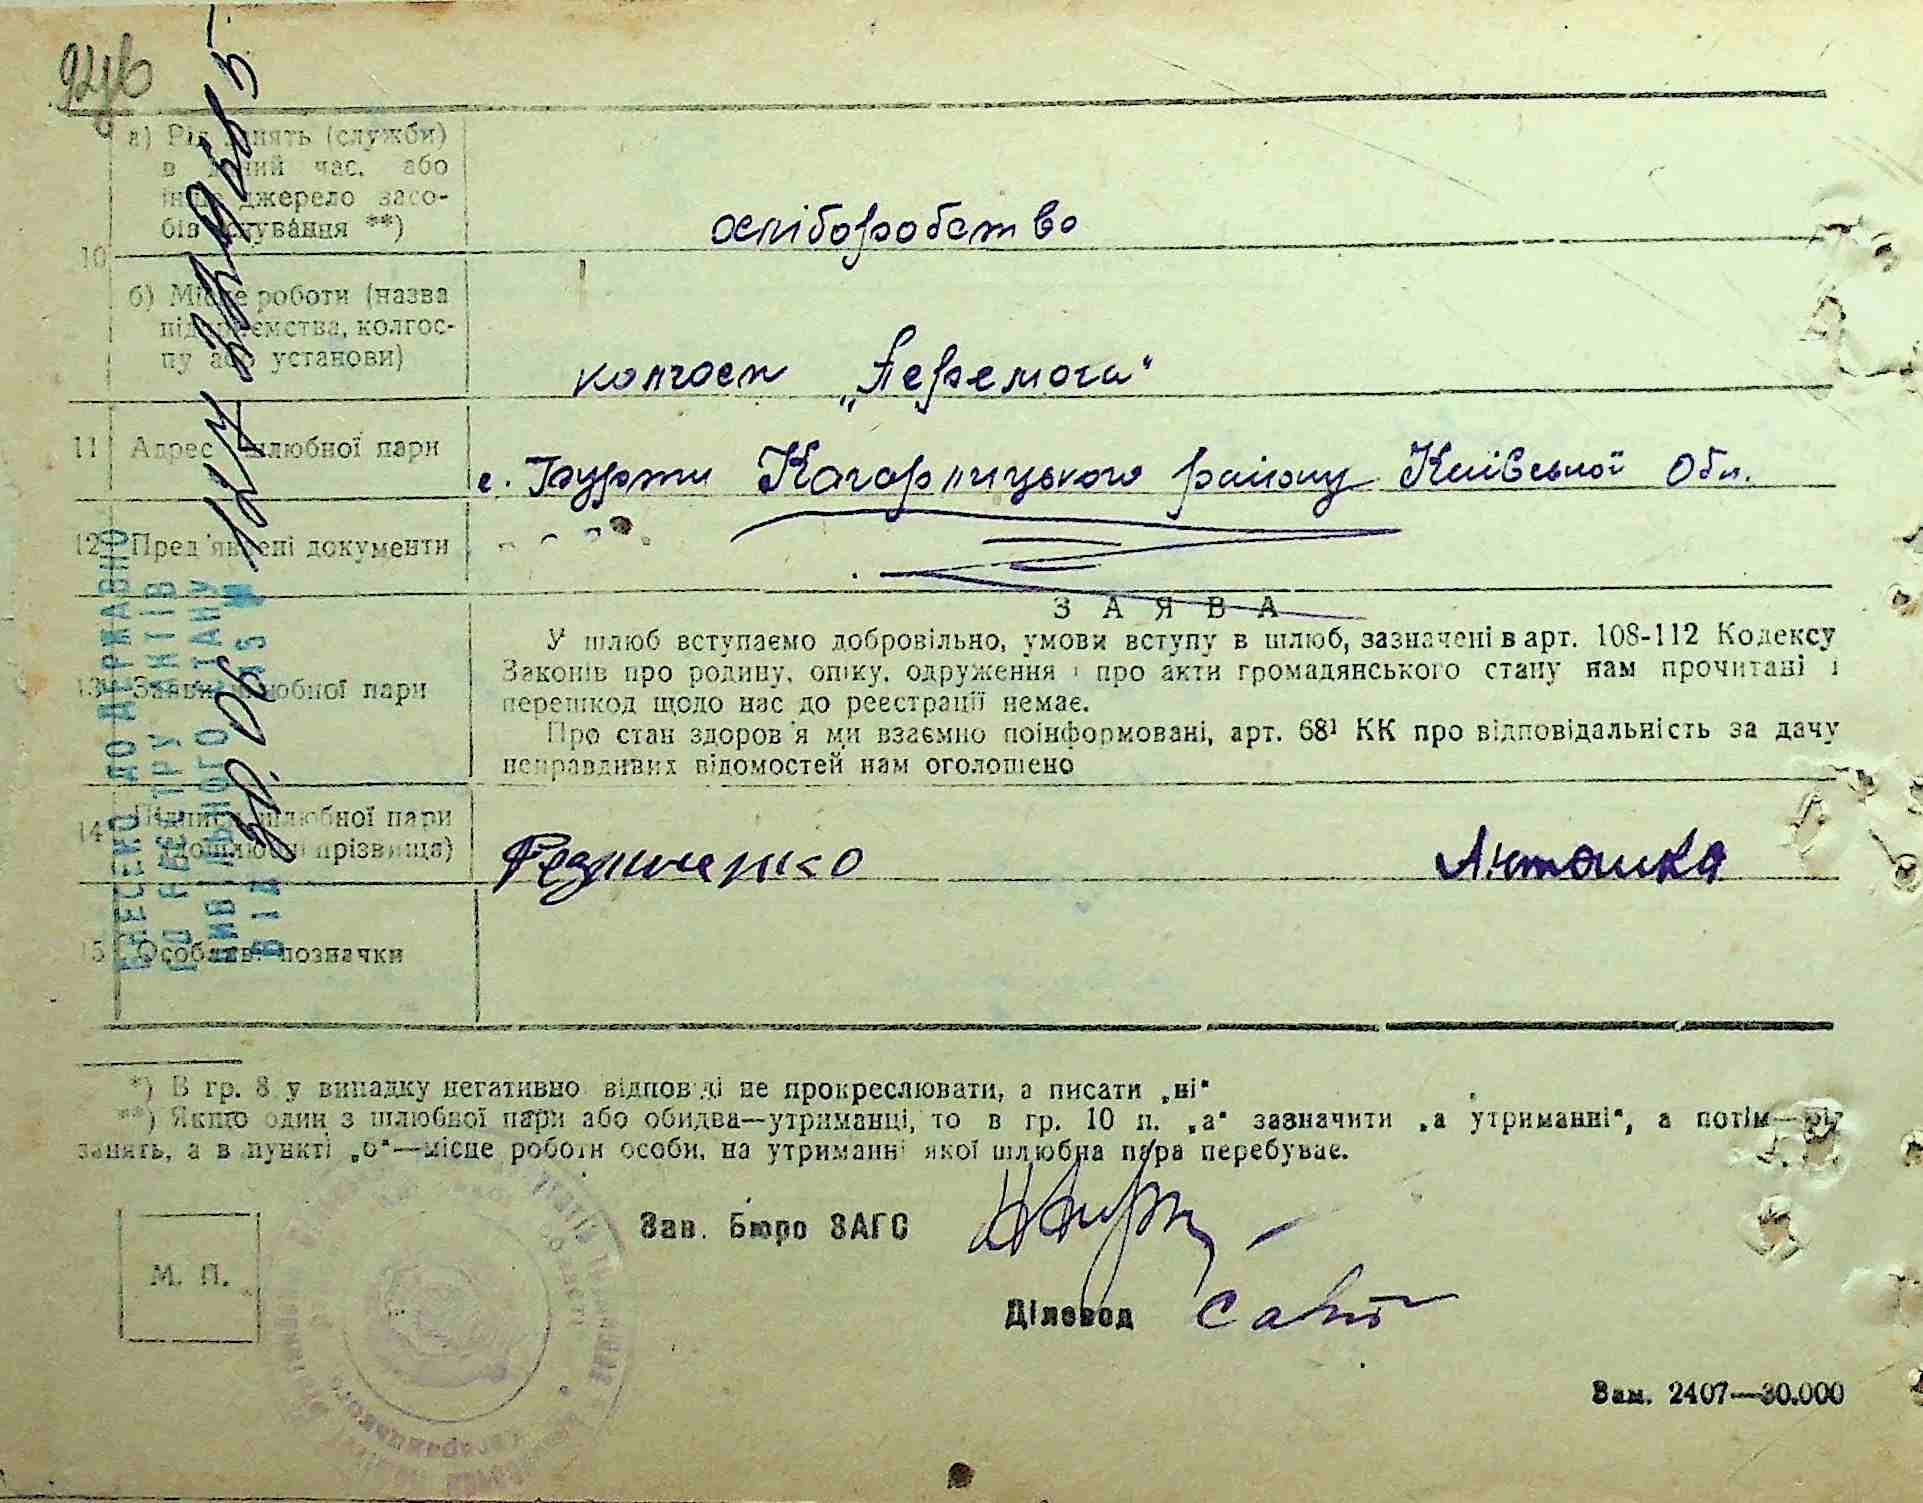 а) Рід занять (служби)
в даний час, або
інше джерело засо-
бів існування **)
хліборобство
10
б) Місце роботи (назва
підприємства, колгос-
пу або установи)
колгосп „Перемога“
11 Адрес шлюбної пари
с. Бурти Кагарлицького району Київської Обл.
12 Пред'явлені документи
З А Я В А
13 Заява шлюбної пари
У шлюб вступаємо добровільно, умови вступу в шлюб, зазначені в арт. 108-112 Кодексу
Законів про родину, опіку, одруження і про акти громадянського стану нам прочитані і
перешкод щодо нас до реєстрації немає.
Про стан здоров'я ми взаємно поінформовані, арт. 68¹ КК про відповідальність за дачу
неправдивих відомостей нам оголошено
14 Підписи шлюбної пари
(дошлюбні прізвища)
Федиченко Антошка
15 Особливі позначки
ВНЕСЕНО ДО ДЕРЖАВНОГО
РЕЄСТРУ АКТІВ
ЦИВІЛЬНОГО СТАНУ
ВІД
*) В гр. 8 у випадку негативно відповіді не прокреслювати, а писати „ні“
**) Якщо один з шлюбної пари або обидва—утриманці, то в гр. 10 п. „а“ зазначити „а утриманні“, а потім—рід
занять, а в пункті „б“—місце роботи особи, на утриманні якої шлюбна пара перебуває.
Зав. Бюро ЗАГС
М. П.
Діловод
Зам. 2407—30.000